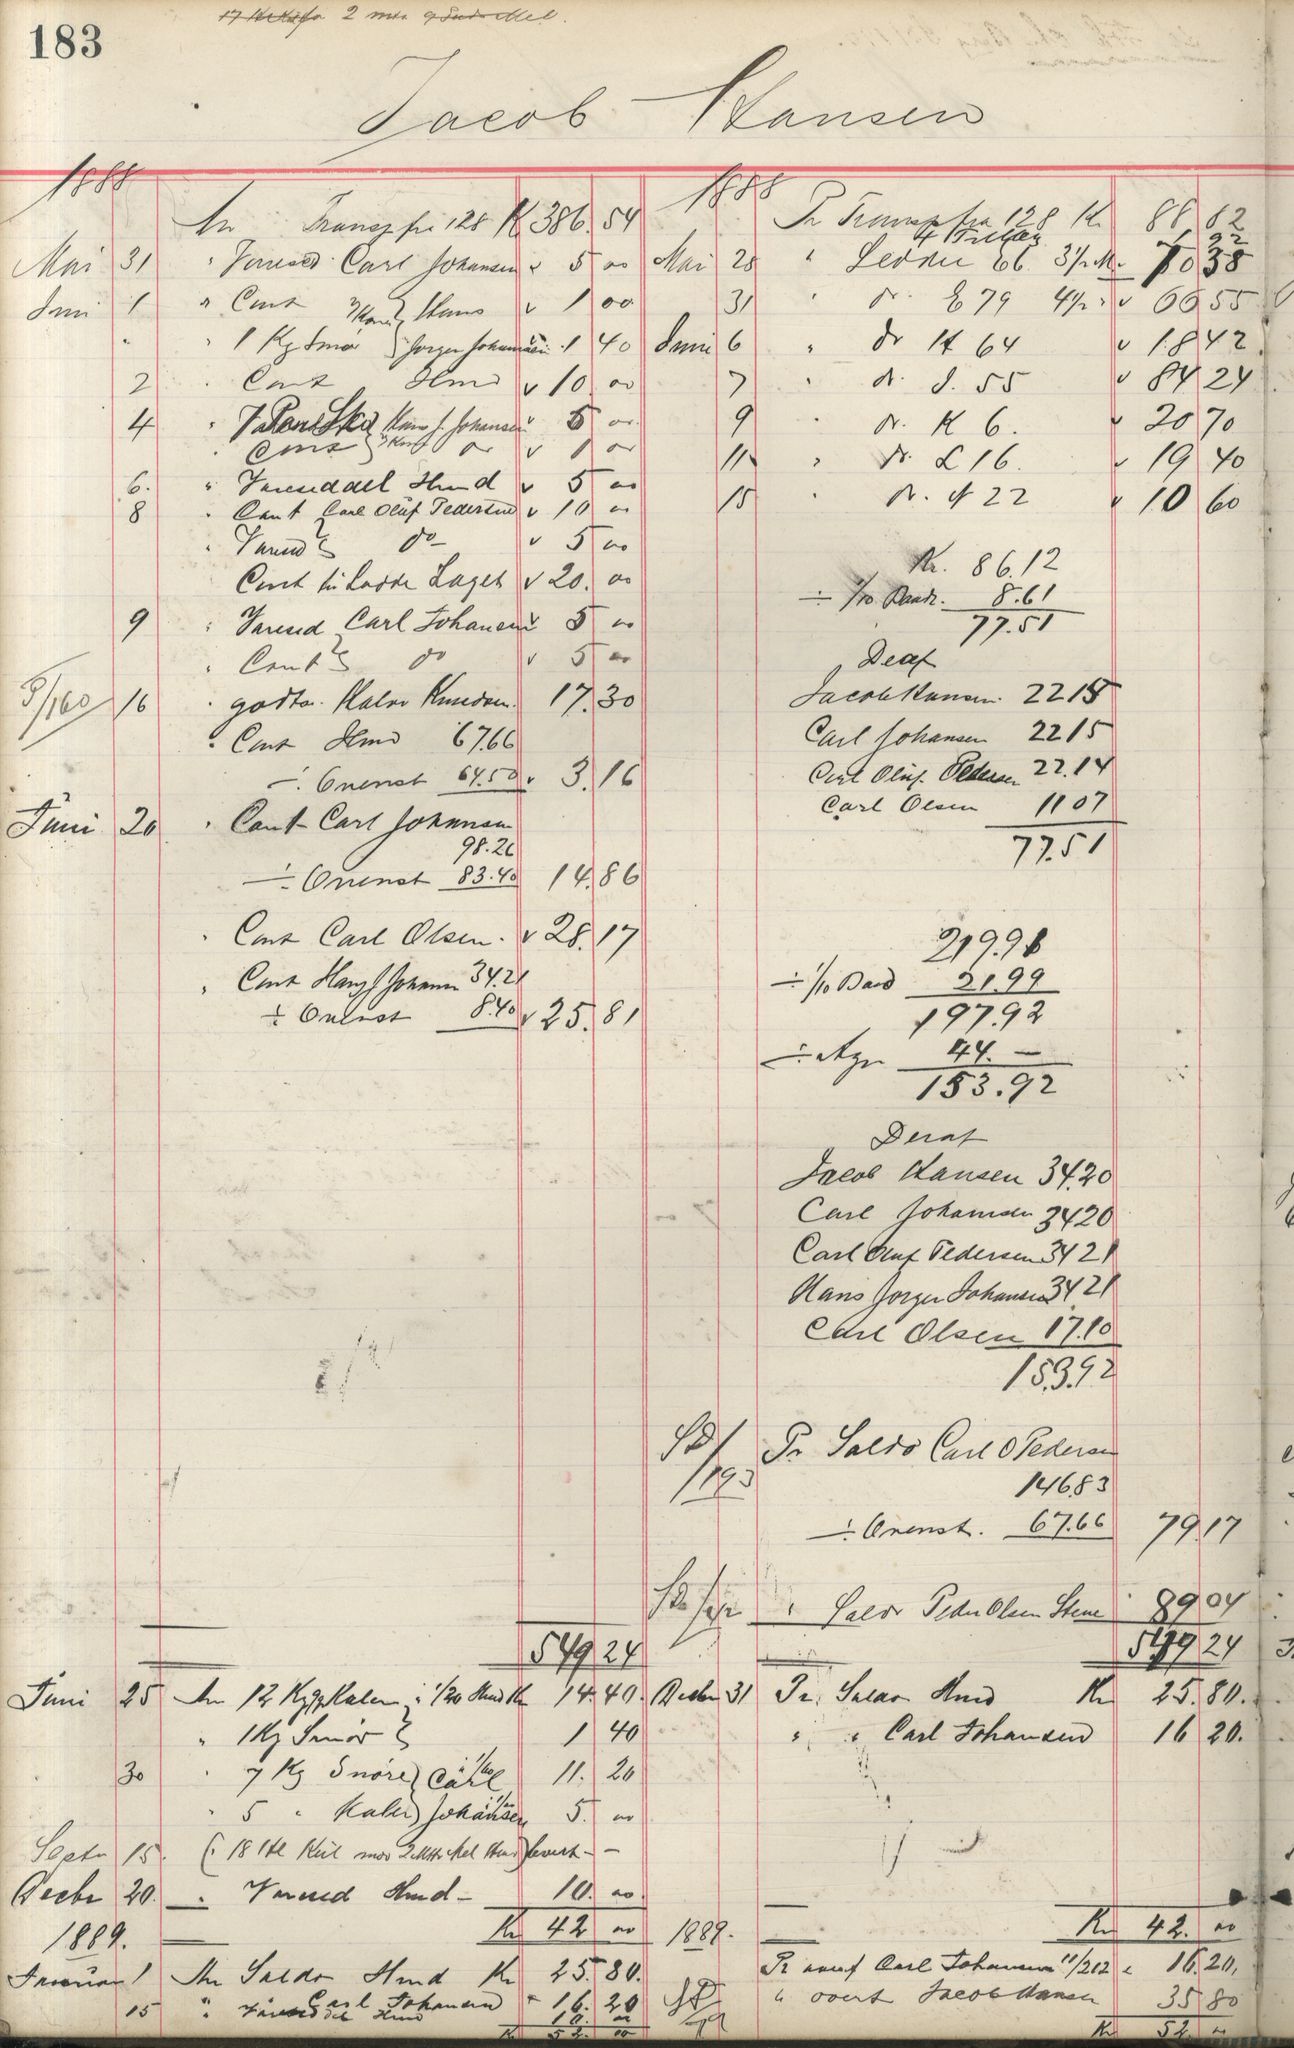 183
2
Jacob Hansen
1888
An Transp fra 128 K 386.54
Mai 31 " Varesed. Carl Johansen " 5 00
Juni 1 " Cont Hans v 1 00
" " 1 Kg Smør Jørgen Johansen 1 40
2 " Cont Hmd v 10 00
4 " Hans J. Johansen v 5 00
" Cont do v 1 00
6. " Vareseddel Hmd v 5 00
8 " Cont Carl Oluf Pedersen v 10 00
" Varesd do v 5 00
Cont til Ladde Laget v 20. 00
9 " Varesed Carl Johansen v 5 00
" Cont do v 5 00
P/160 16 " godtg. Halvor Knudsen 17.30
" Cont Hmd 67.66
÷ Ovenst 64.50 v 3.16
Juni 20 " Cont Carl Johansen
98.26
÷ Ovenst 83.40 14.86
" Cont Carl Olsen. v 28.17
" Cont Hans J Johansen 34.21
÷ Ovenst 8.40 v 25.81
549 24
Juni 25 An 12 Kg Kaler 1/20 Hmd Kr 14.40
" 1 Kg Smør 1 40
30 " 7 Kg Snøre Carl 11. 20
" 5 " Kaler Johansen 5. 00
Septr 15. (18 Htl levert - -
Decbr 20. " Varesed Hmd - 10. 00
Kr 42 00
1889.
Januar 1 An Saldo Hmd Kr 25.80.
" Carl Johansen " 16.20
15 " Vareseddel Hmd 10. 00
Kr 52. 00
1888
Pr Transp fra 128 Kr 88 82
Mai 28 " Ledder E6 3½ M.
31 " do. E 79 4½ " v 66 55
Juni 6 " do H 64 v 18 42
7 " do. J. 55 v 84 24
9 " do. K 6. v 20 70
11 " do. L 16. v 19 40
15 " do. 22 v 10 60
Kr. 86.12
÷ 1/10 Baade. 8.61
77.51
Deraf
Jacob Hansen. 22 15
Carl Johansen 22 15
Carl Oluf. Pedersen 22.14
Carl Olsen 11 07
77.51
219.91
÷ 1/10 Baad 21.99
197.92
÷ Agn 44. —
153.92
Deraf
Jacob Hansen 34.20
Carl Johansen 34 20
Carl Oluf Pedersen 34 21
Hans Jørgen Johansen 34 21
Carl Olsen 17.10
153.92
/193 Pr Saldo Carl O Pedersen
146.83
÷ Ovenst. 67.66 79.17
" Saldo Peder Olsen Stene 89 04
549 24
Decbr 31 Pr. Saldo Hmd Kr 25.80.
" " Carl Johansen 16 20.
Kr 42. 00
1889.
Pr overf Carl Johansen 11/212 " 16.20.
" overf Jacob Hansen 35 80
Kr 52. 00